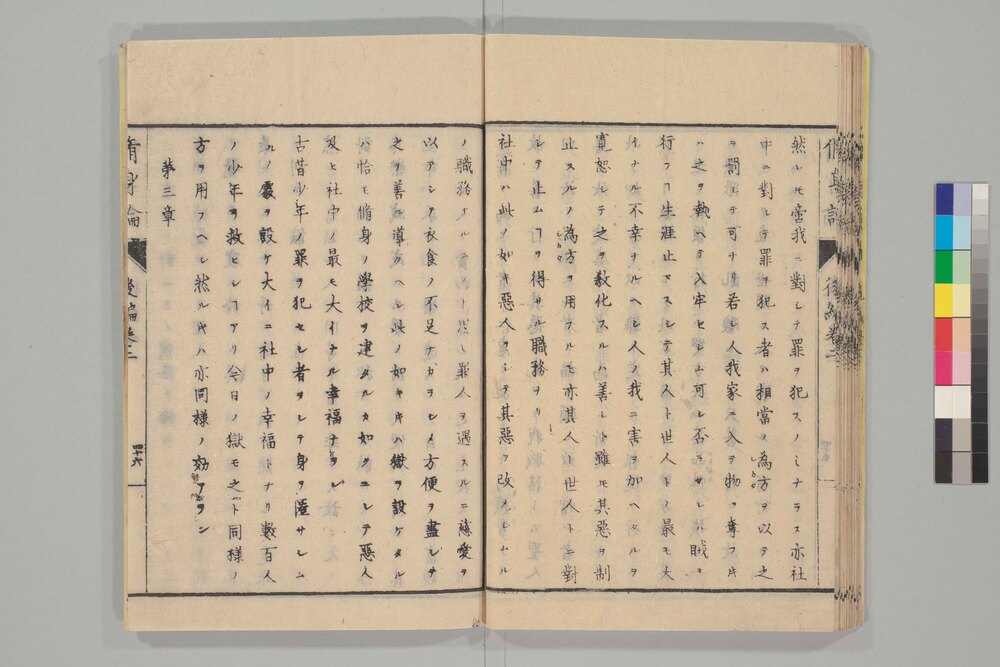 然レモ啻我ニ對シテ罪ヲ犯スノミナラス亦社
中ニ對シテ罪ヲ犯ス者ハ相當ノ為方ヲ以テ之
ヲ罰シテ可ナリ若シ人我家ニ入ヲ物ヲ奪フ片
ハ之ヲ執ヘテ入牢セシム可シ否ラサレハ賊ヲ
行フヿ生涯止マスシテ其人ト世人トノ最モ大
イナル不幸ヲルヘシ人ノ我ニ害ヲ加ヘタルヲ
寛恕シテ之ヲ教化スルハ善シト雖モ其惡ヲ制
止スルノ為方ヲ用フルモ亦其人ト世人トニ對
シテ止ムヿヲ得サル職務ヲリ
社中ハ此ノ如キ惡人ヲシテ其惡ヲ改メシムル
ノ職務アル 罪人ヲ遇スルニ慈愛ヲ
以テシテ衣食ノ不足ナカラシメ方便ヲ盡シテ
之ヲ善ニ導クヘシ此ノ如キ片ハ獄ヲ設ケタル
ハ恰モ脩身ノ學校ヲ建タルカ如クニシテ惡人
及ヒ社中ノ最モ大イナル幸福ナラン
古昔少年ノ罪ヲ犯セシ者ヲシテ身ヲ匿サシム
ルノ處ヲ設ケ大イニ社中ノ幸福トナリ數百人
ノ少年ヲ救ヒシヿアリ今日ノ獄モ之ト同様ノ
方ヲ用フヘシ然ル片ハ亦同様ノ効アラン
第三章
脩身論 後編卷二
四十六